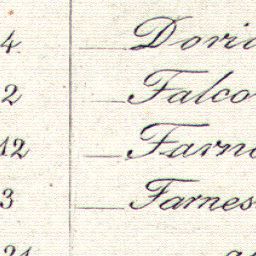 4 Dori
2 Falco
12 Farn
3 Farnes
21